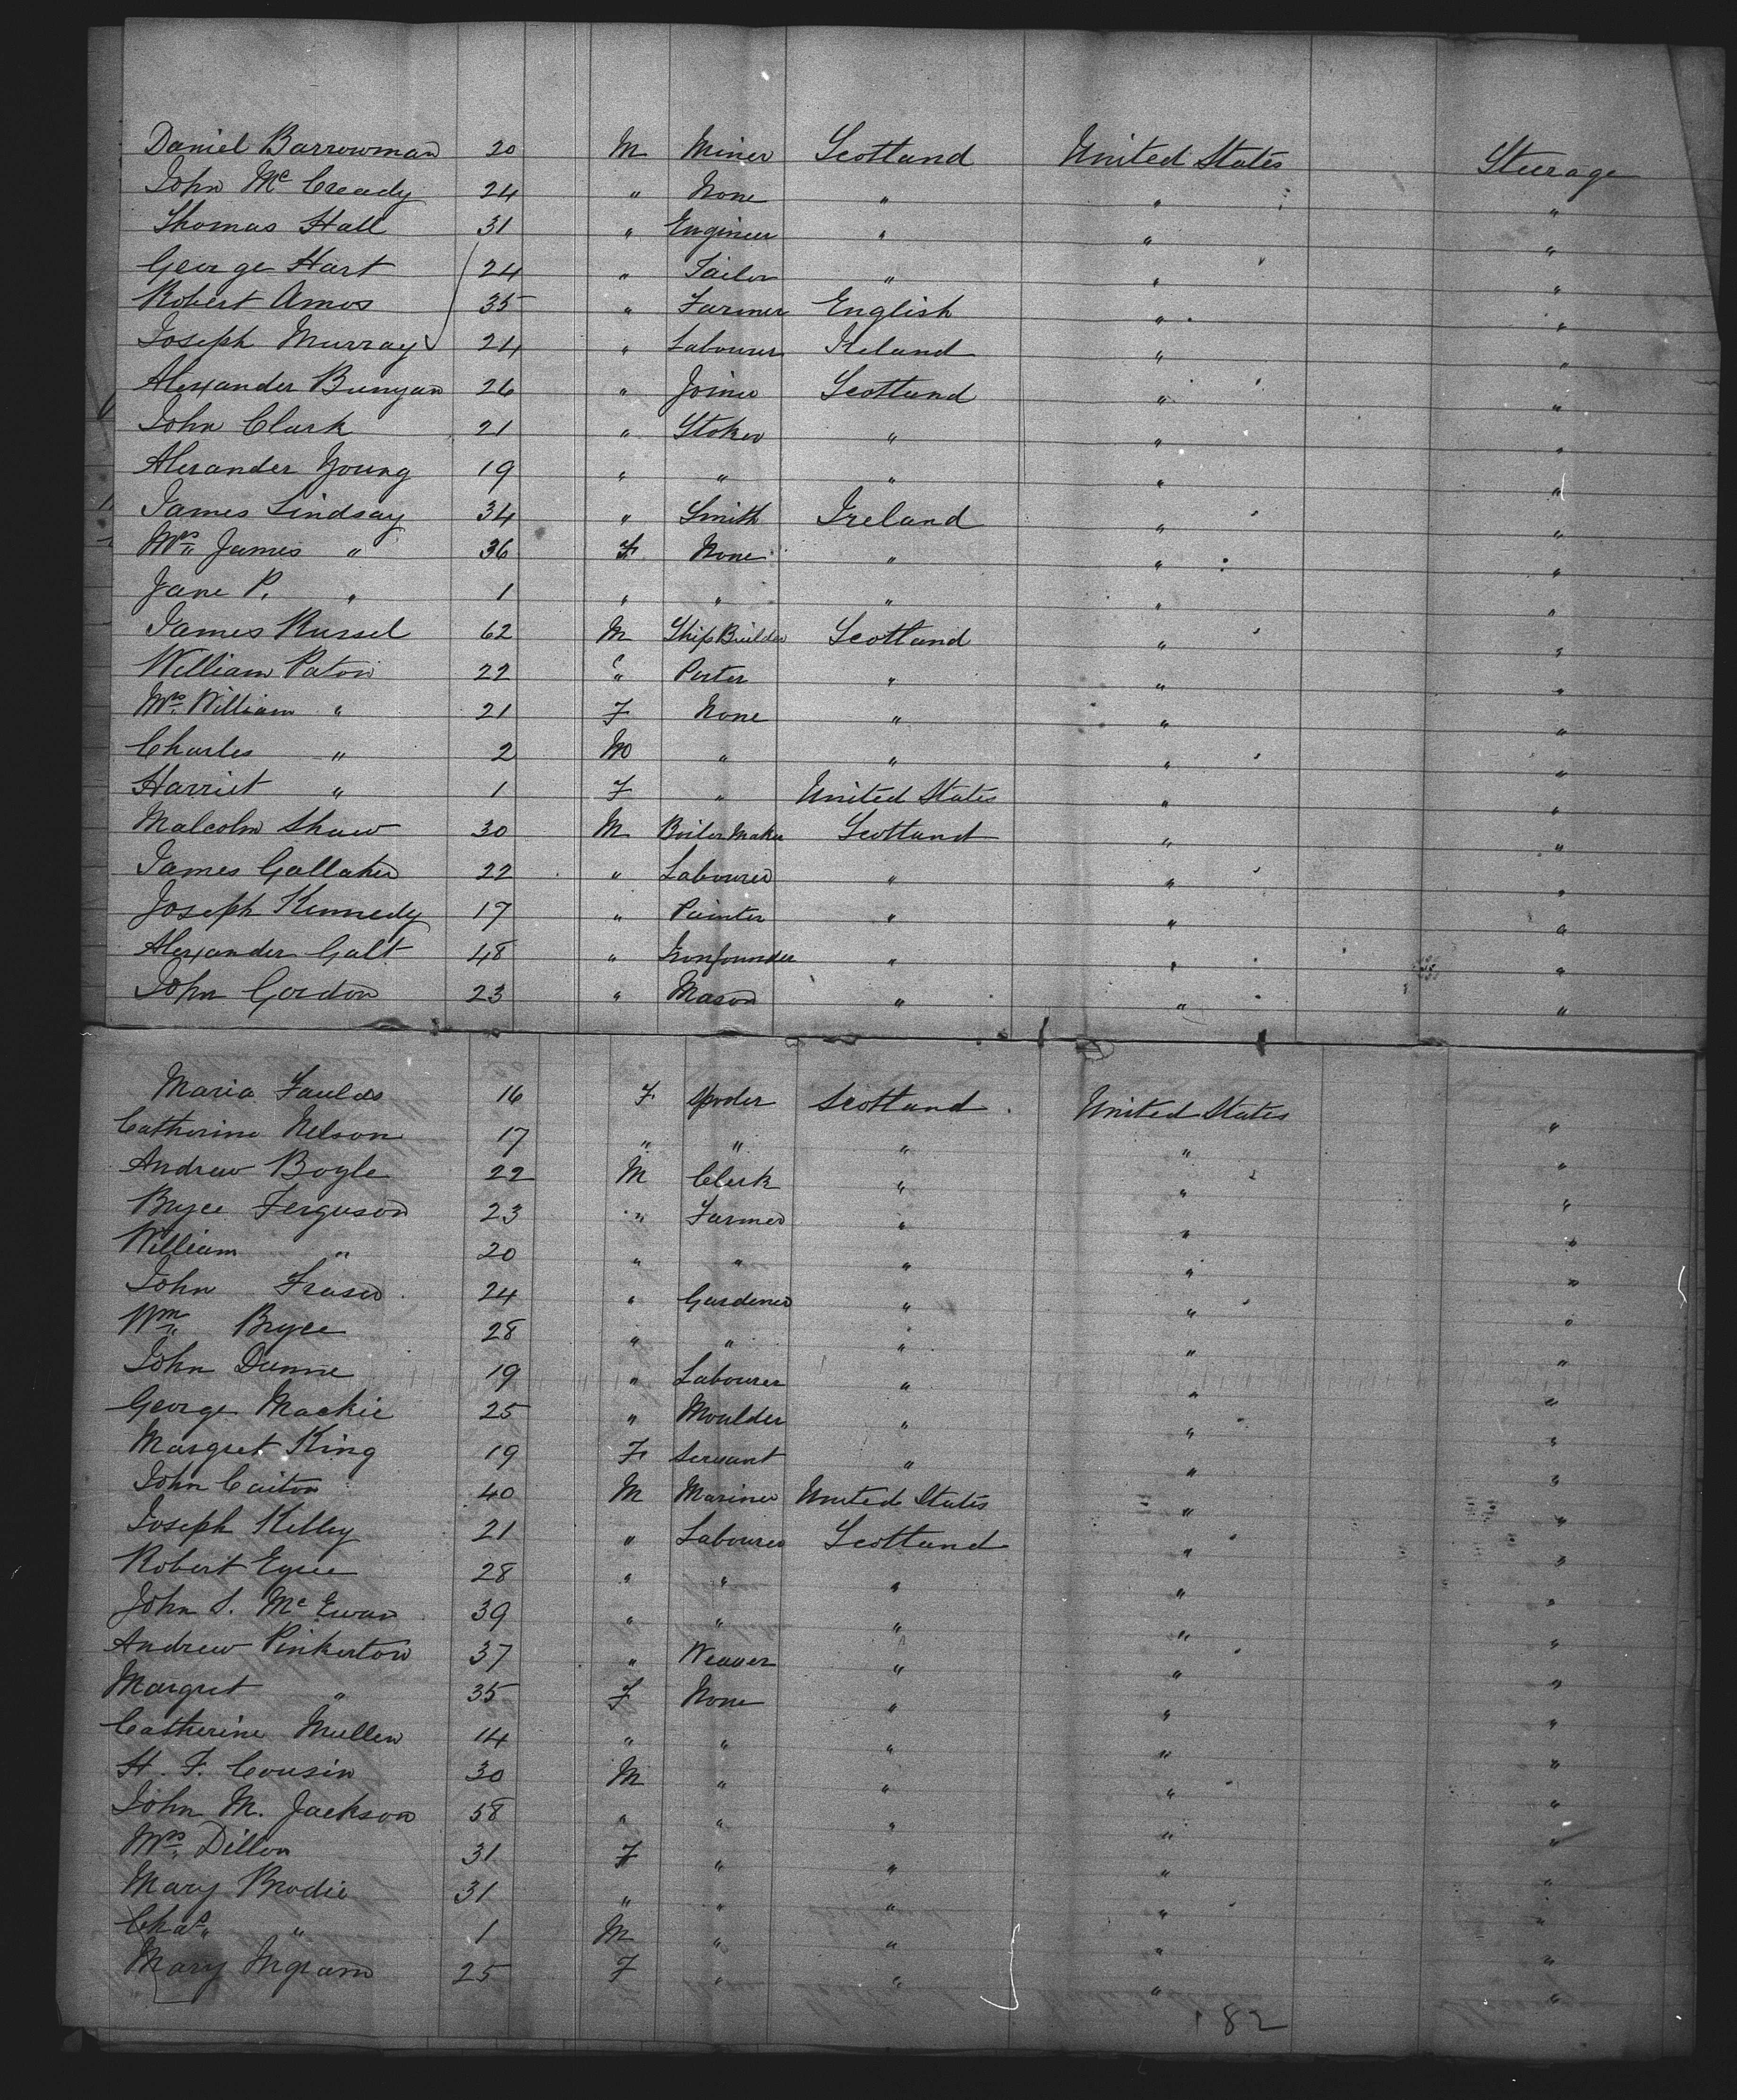 Daniel Barrowman 20 M Miner Scotland United States Steerage
John McCready 24 " None " " "
Thomas Hall 31 " Engineer " " "
George Hart 24 " Tailor " " "
Robert Amos 35 " Farmer English " "
Joseph Murray 24 " Labourer Ireland " "
Alexander Bunyan 26 " Joiner Scotland " "
John Clark 21 " Stoker " " "
Alexander Young 19 " " " " "
James Lindsay 34 " Smith Ireland " "
Mrs James " 36 F None " " "
Jane P. " 1 " " " " "
James Russel 62 M Ship Builder Scotland " "
William Paton 22 " Porter " " "
Mrs. William " 21 F None " " "
Charles " 2 M " " " "
Harriet " 1 F " United States " "
Malcolm Shaw 30 M Boiler Maker Scotland " "
James Gallaher 22 " Labourer " " "
Joseph Kennedy 17 " Painter " " "
Alexander Galt 48 " Ironfounder " " "
John Gordon 23 " Mason " " "
Maria Faulds 16 F Scotland United States "
Catherine Nelson 17 " " " " "
Andrew Boyle 22 M Clerk " " "
Bryce Ferguson 23 " Farmer " " "
William " 20 " " " " "
John Fraser 24 " Gardener " " "
Wm Bryce 28 " " " " "
John Dunne 19 " Labourer " " "
George Mackie 25 " Moulder " " "
Margret King 19 F Servant " " "
John 40 M Mariner United States " "
Joseph Kelley 21 " Labourer Scotland " "
Robert 28 " " " " "
John S. McEwan 39 " " " " "
Andrew Pinkerton 37 " Weaver " " "
Margret " 35 F None " " "
Catherine Mullen 14 " " " " "
H. F. Cousin 30 M " " " "
John M. Jackson 58 " " " " "
Mrs. Dillon 31 F " " " "
Mary Brodie 31 " " " " "
Chas " 1 M " " " "
Mary Ingram 25 F " " " "
182